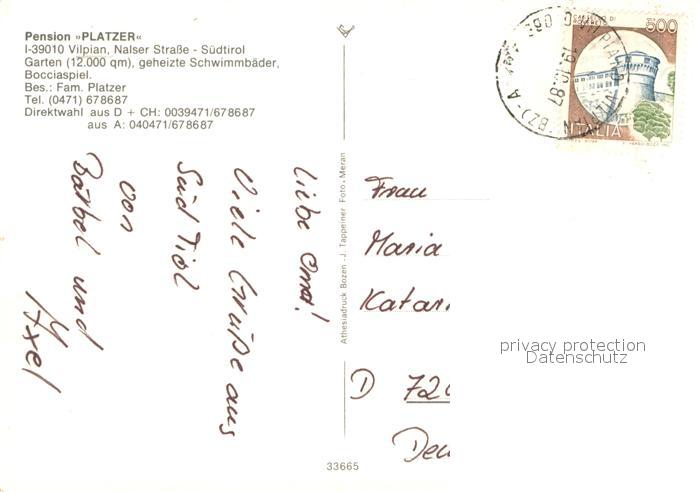 Pension »PLATZER«
I-39010 Vilpian, Nalser Straße - Südtirol
Garten (12.000 qm), geheizte Schwimmbäder,
Bocciaspiel.
Bes.: Fam. Platzer
Tel. (0471) 678687
Direktwahl aus D + CH: 0039471/678687
aus A: 040471/678687
Liebe Oma!
Viele Grüße aus
Süd Tirol
von
Bärbel und
Axel
Athesiadruck Bozen - J. Tappeiner Foto, Meran
33665
500
ITALIA
19.10.87
Frau
Maria
Katar
D 720
Deu
privacy protection
Datenschutz